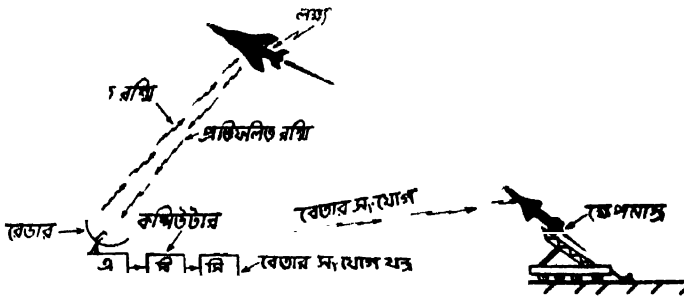 লক্ষ্য
রশ্মি
প্রতিফলিত রশ্মি
রেডার
কম্পিউটার
বেতার সংযোগ
ক্ষেপনাস্ত্র
এ
বি
সি
বেতার সংযোগ যন্ত্র